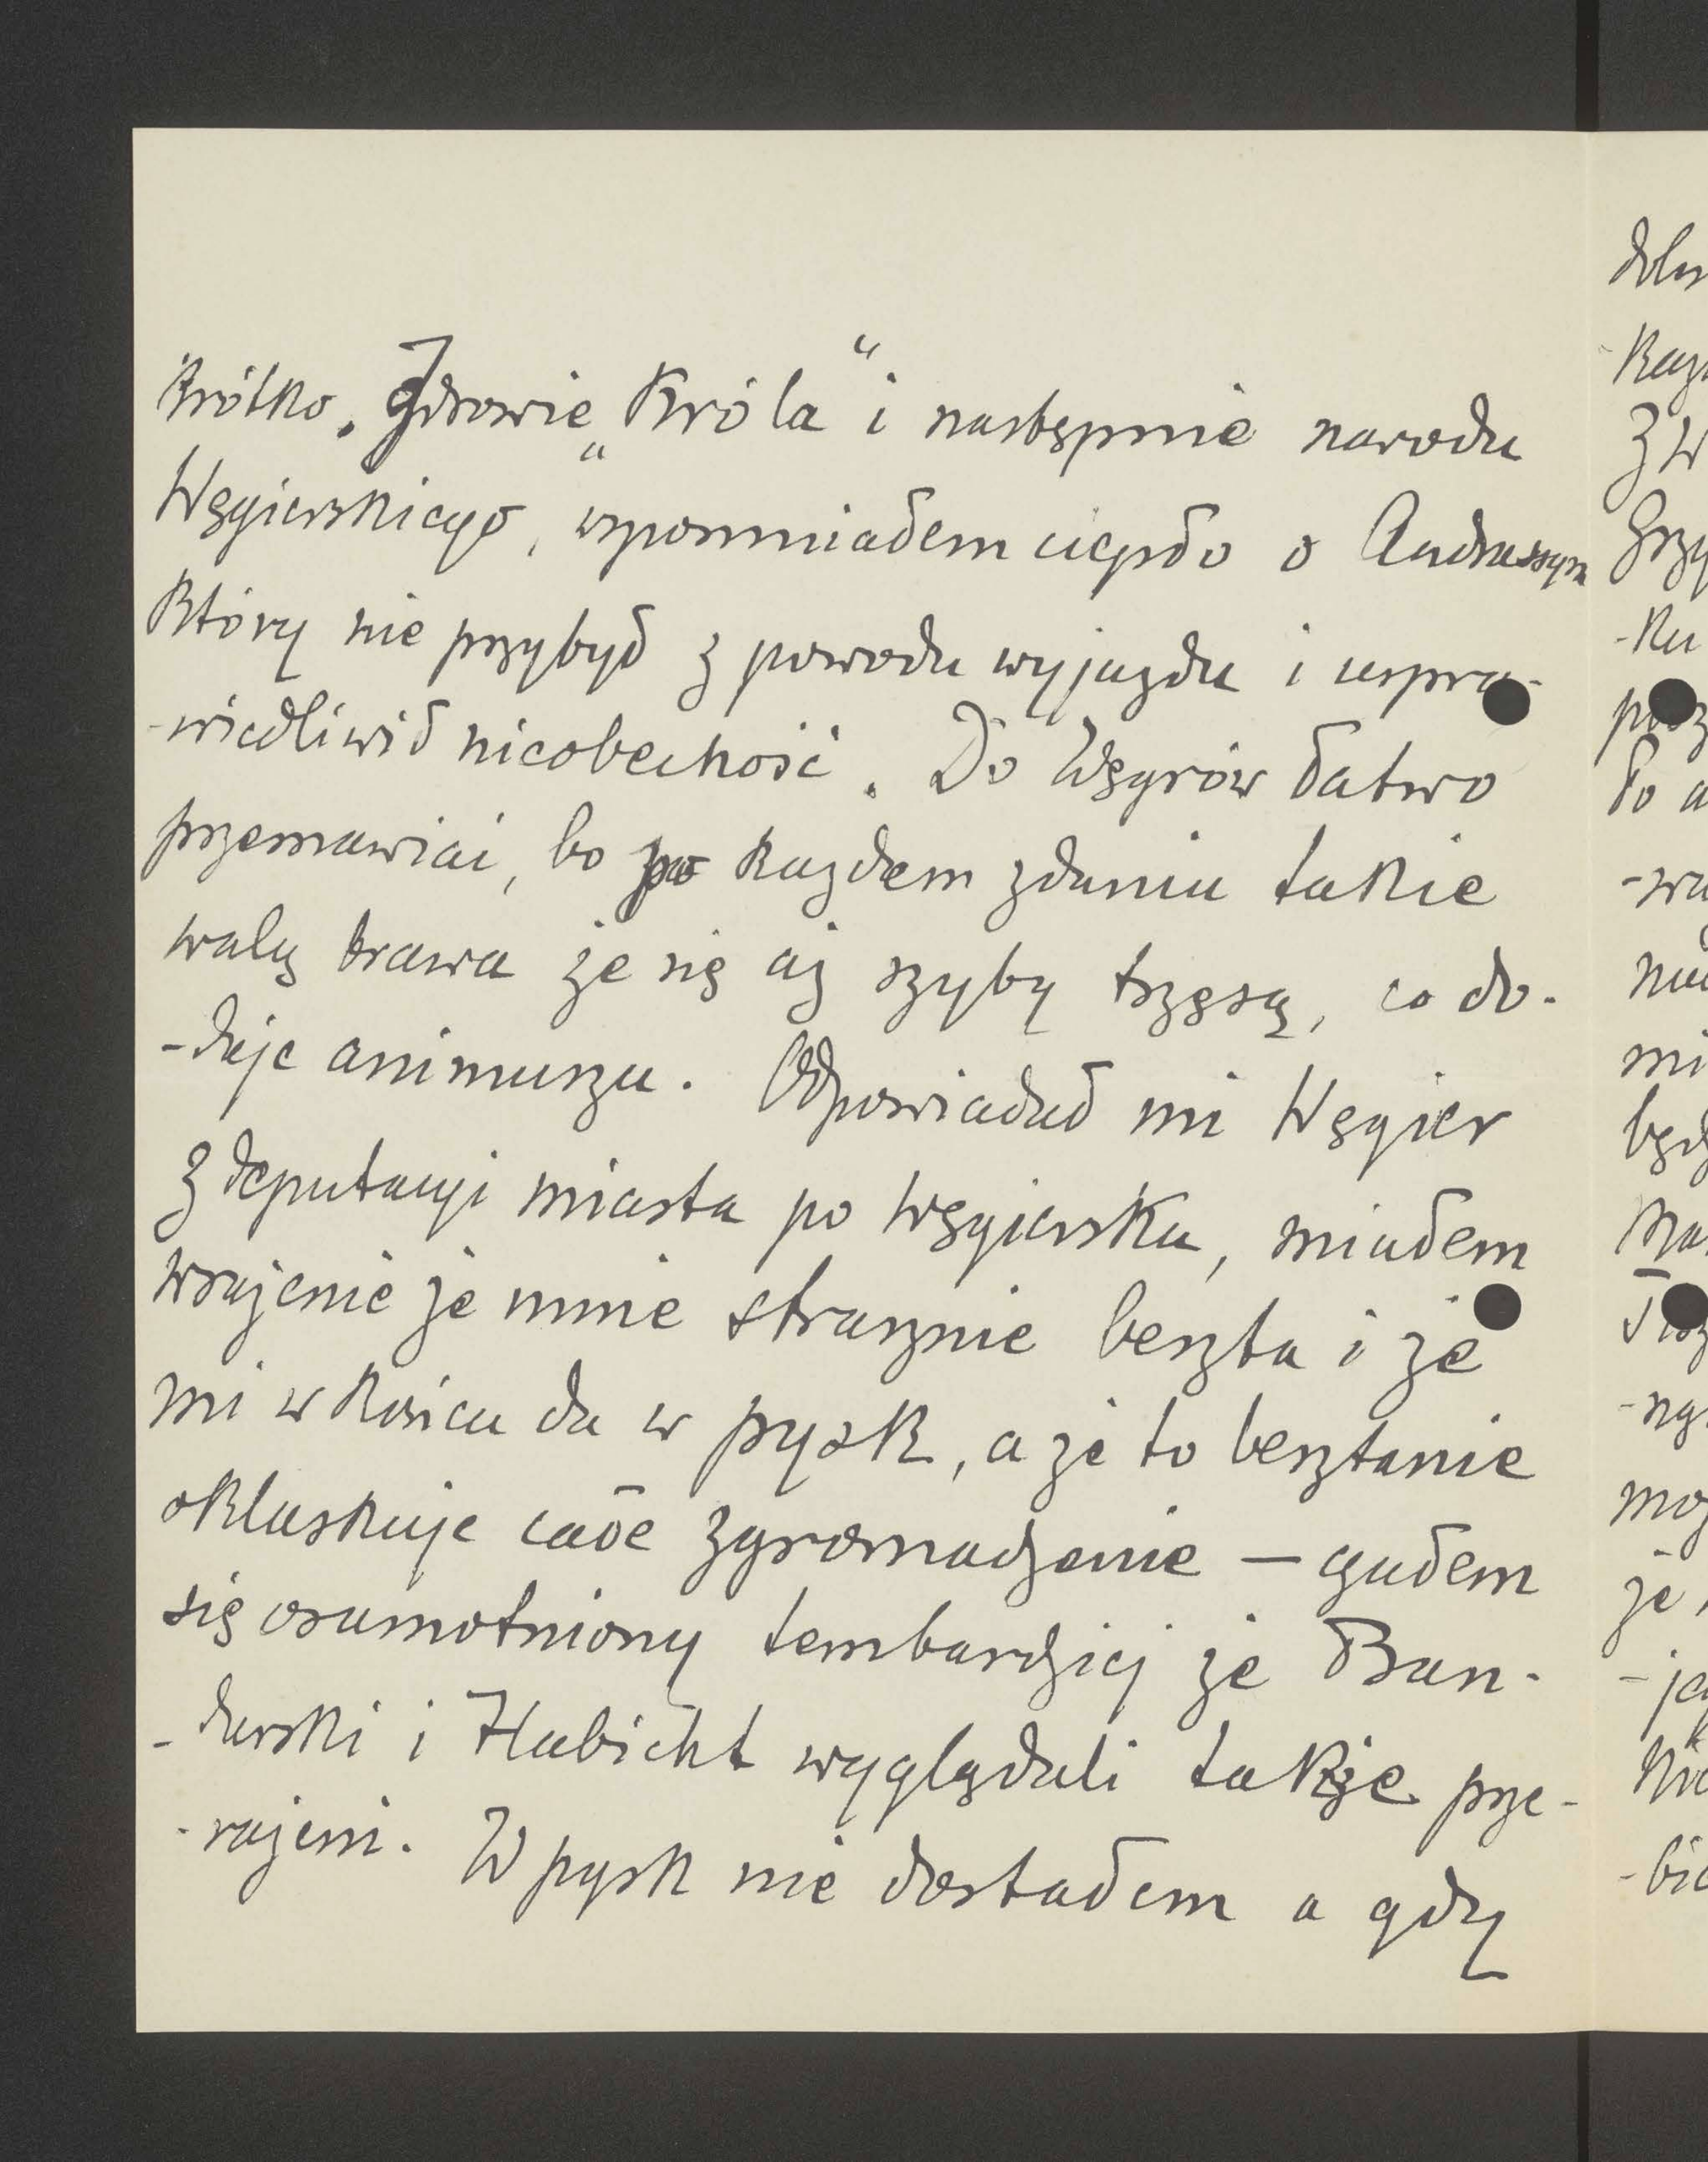 krótko. Zdrowie „Króla“ i następnie narodu
Węgierskiego, wspomniałem ciepło o Andrassym
który nie przybył z powodu wyjazdu i uspra-
-wiedliwił nieobecność. Do Węgrów łatwo
przemawiać, bo po każdem zdaniu takie
walą brawa że się aż szyby trzęsą, co do-
-daje animuszu. Odpowiadał mi Węgier
z deputacyi miasta po Węgiersku, miałem
wrażenie że mnie strasznie beszta i że
mi w końcu da w pysk, a że to besztanie
oklaskuje całe zgromadzenie — czułem
się osamotniony tembardziej że Ban-
-durski i Habicht wyglądali także prze-
-rażeni. W pysk nie dostałem a gdy